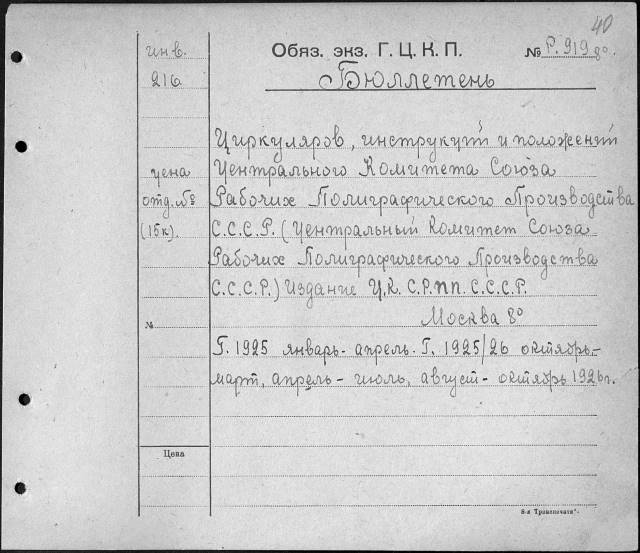 40
инв.
216
Обяз. экз. Г. Ц. К. П.
№ Р. 919 8º
Бюллетень
Циркуляров, инструкций и положений
цена
Центрального Комитета Союза
отд. №
Рабочих Полиграфического Производства
(15к).
С.С.С.Р. (Центральный Комитет Союза
Рабочих Полиграфического Производства
С.С.С.Р.) Издание Ц.К. С.Р.ПП. С.С.С.Р.
№
Москва 8º
Г. 1925 январь - апрель. Г. 1925/26 октябрь-
март, апрель - июль, август - октябрь 1926 г.
Цена
8-я "Транспечати".